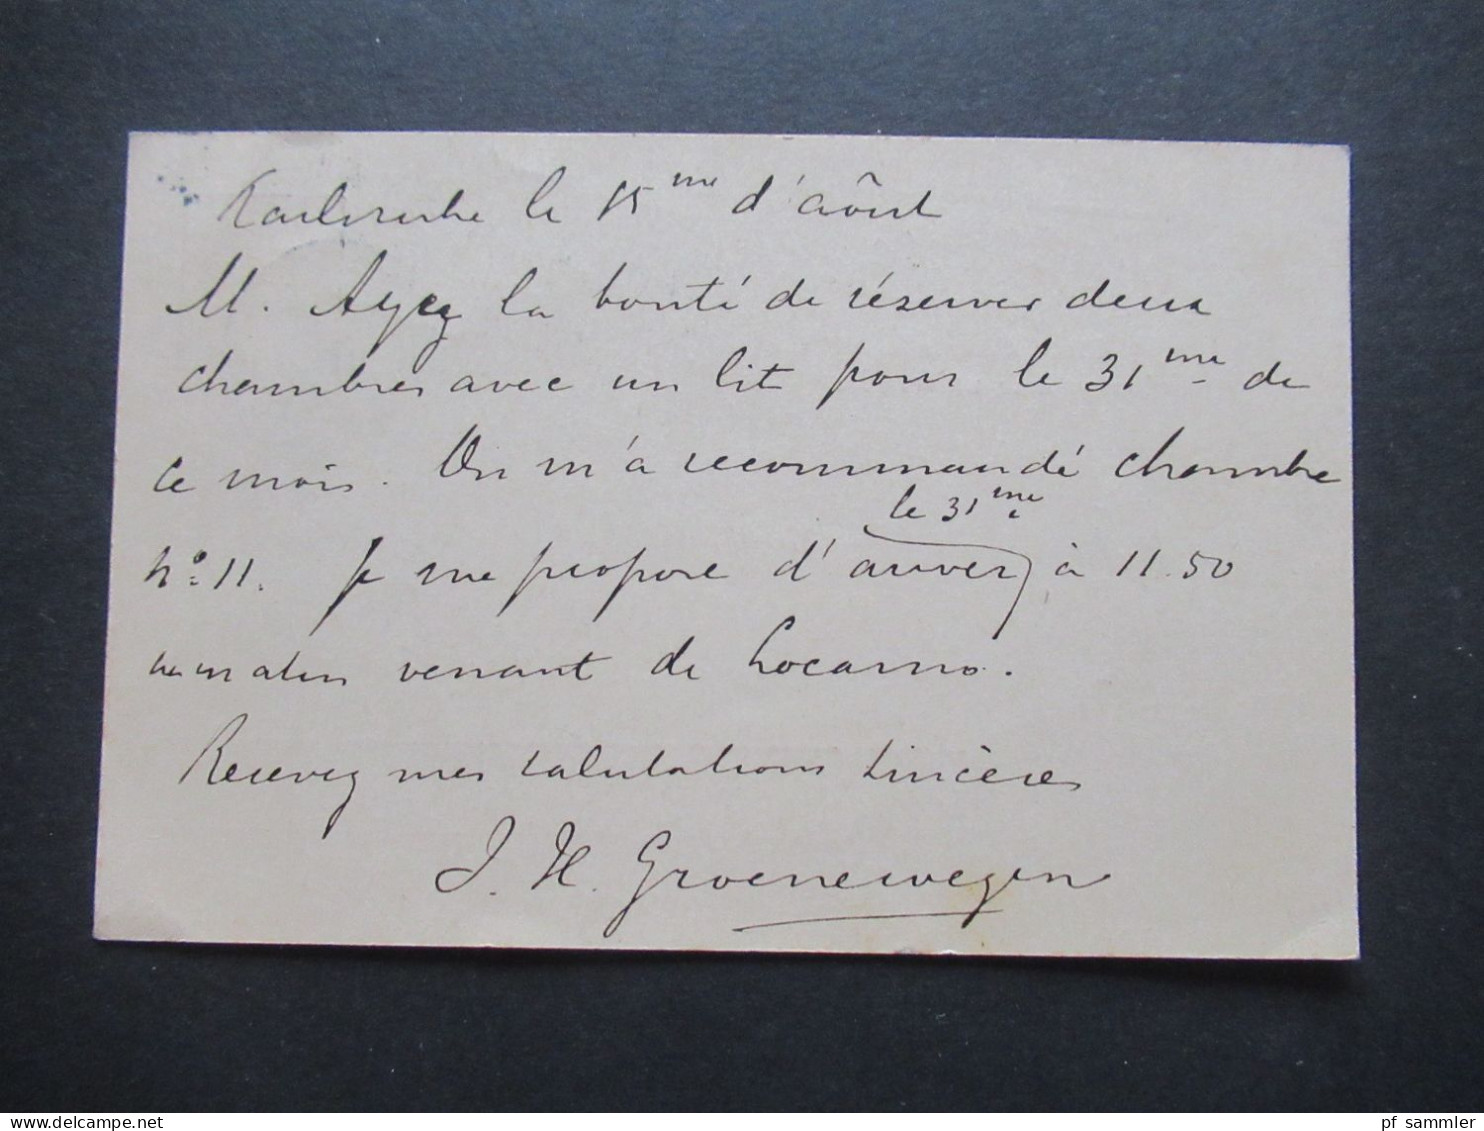 Karlsruhe le 15 me d'aôut
M. Ayez la bonté de réserver deux
chambres avec un lit pour le 31 me de
ce mois. On m'a recommandé chambre
le 31 me
No 11. Je me propose d'arriver, à 11.50
du matin venant de Locarno.
Recevez mes salutations sincères
J. H. Groenewegen
pf sammler